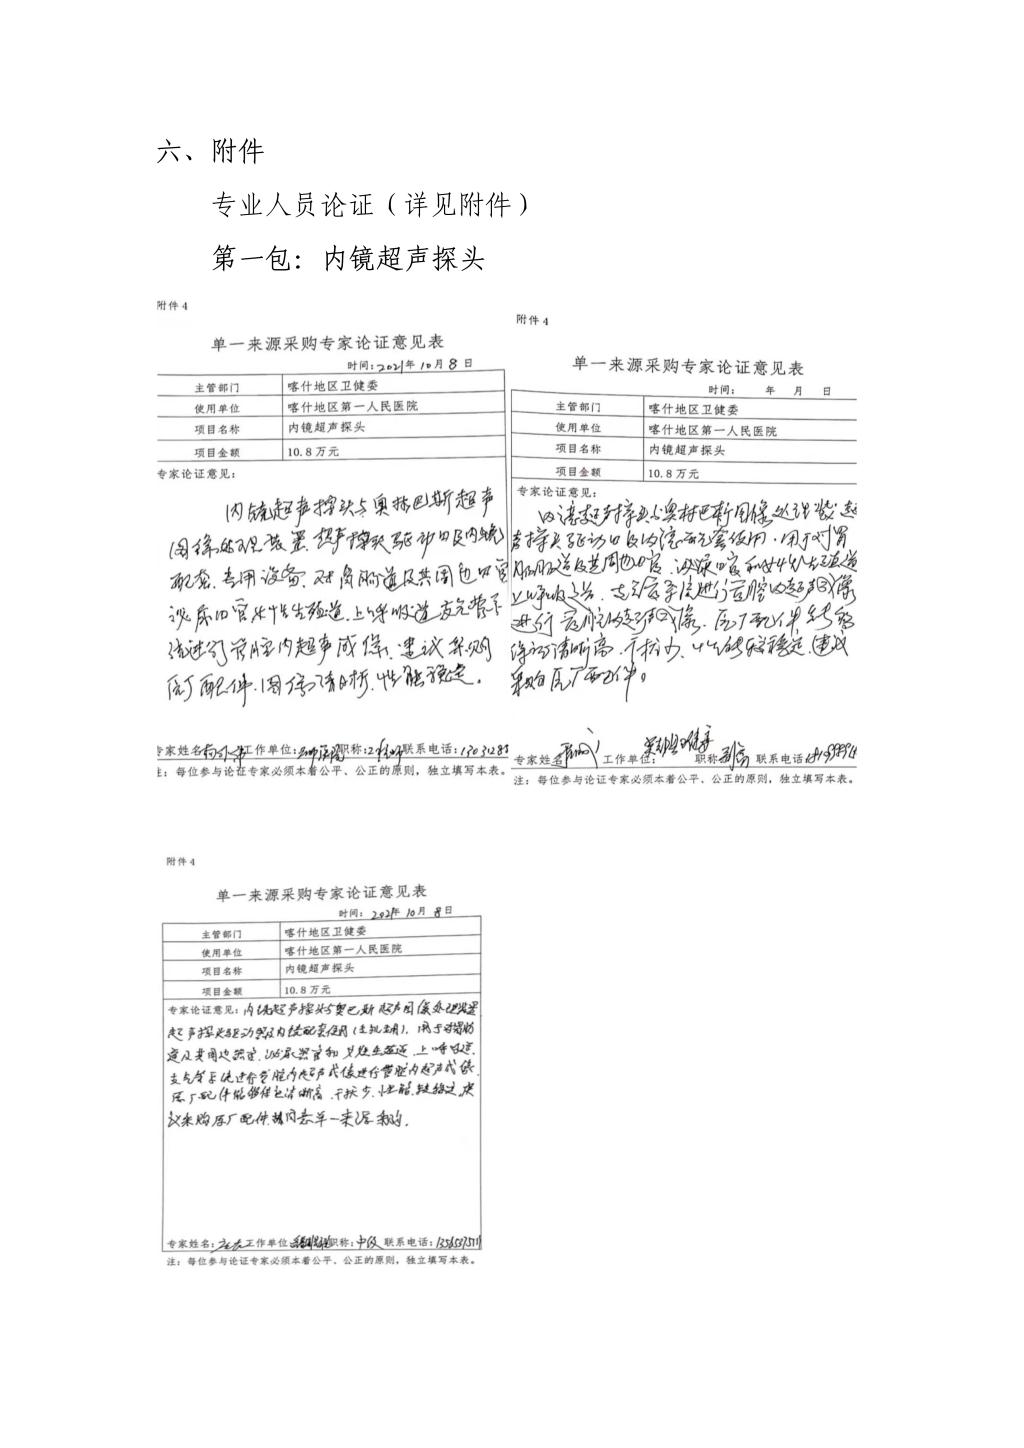 六、附件
专业人员论证（详见附件）
第一包：内镜超声探头
附件 4
单一来源采购专家论证意见表
时间：2021年 10月 8 日
主管部门 喀什地区卫健委
使用单位 喀什地区第一人民医院
项目名称 内镜超声探头
项目金额 10.8 万元
专家论证意见：
内镜超声探头与奥林巴斯超声
图像处理装置、超声探头驱动口及内镜
配套、专用设备、对胃肠道及其周边口官
泌尿口官女性生殖道、上呼吸道支气管下
统进行管腔内超声成像、建议采购
原厂配件、图像清晰、性能稳定。
专家姓名 工作单位： 职称：工程师 联系电话：
注：每位参与论证专家必须本着公平、公正的原则，独立填写本表。
附件 4
单一来源采购专家论证意见表
时间： 年 月 日
主管部门 喀什地区卫健委
使用单位 喀什地区第一人民医院
项目名称 内镜超声探头
项目金额 10.8 万元
专家论证意见：
内镜超声探头与奥林巴斯图像处理装置超
声探头驱动口及内镜配套使用，用于对胃
肠道及其周边口官、泌尿口官和女性生殖道
上呼吸道、支气管系统进行管腔内超声成像
进行管腔内超声成像、原厂配件能够
保证清晰高、干扰少、性能较稳定，建议
采购原厂配件。
专家姓名 工作单位： 职称 联系电话
注：每位参与论证专家必须本着公平、公正的原则，独立填写本表。
附件 4
单一来源采购专家论证意见表
时间： 2021年 10 月 8 日
主管部门 喀什地区卫健委
使用单位 喀什地区第一人民医院
项目名称 内镜超声探头
项目金额 10.8 万元
专家论证意见：内镜超声探头与奥巴斯超声图像处理装置
超声探头驱动器及内镜配套使用（主机专用），用于对胃肠
道及其周边器官、泌尿器官和女性生殖道、上呼吸道、
支气管系统进行管腔内超声成像进行管腔内超声成像、
原厂配件能够保证清晰高、干扰少、性能较稳定，建
议采购原厂配件，请同意单一来源采购。
专家姓名： 工作单位： 职称：中级 联系电话：
注：每位参与论证专家必须本着公平、公正的原则，独立填写本表。